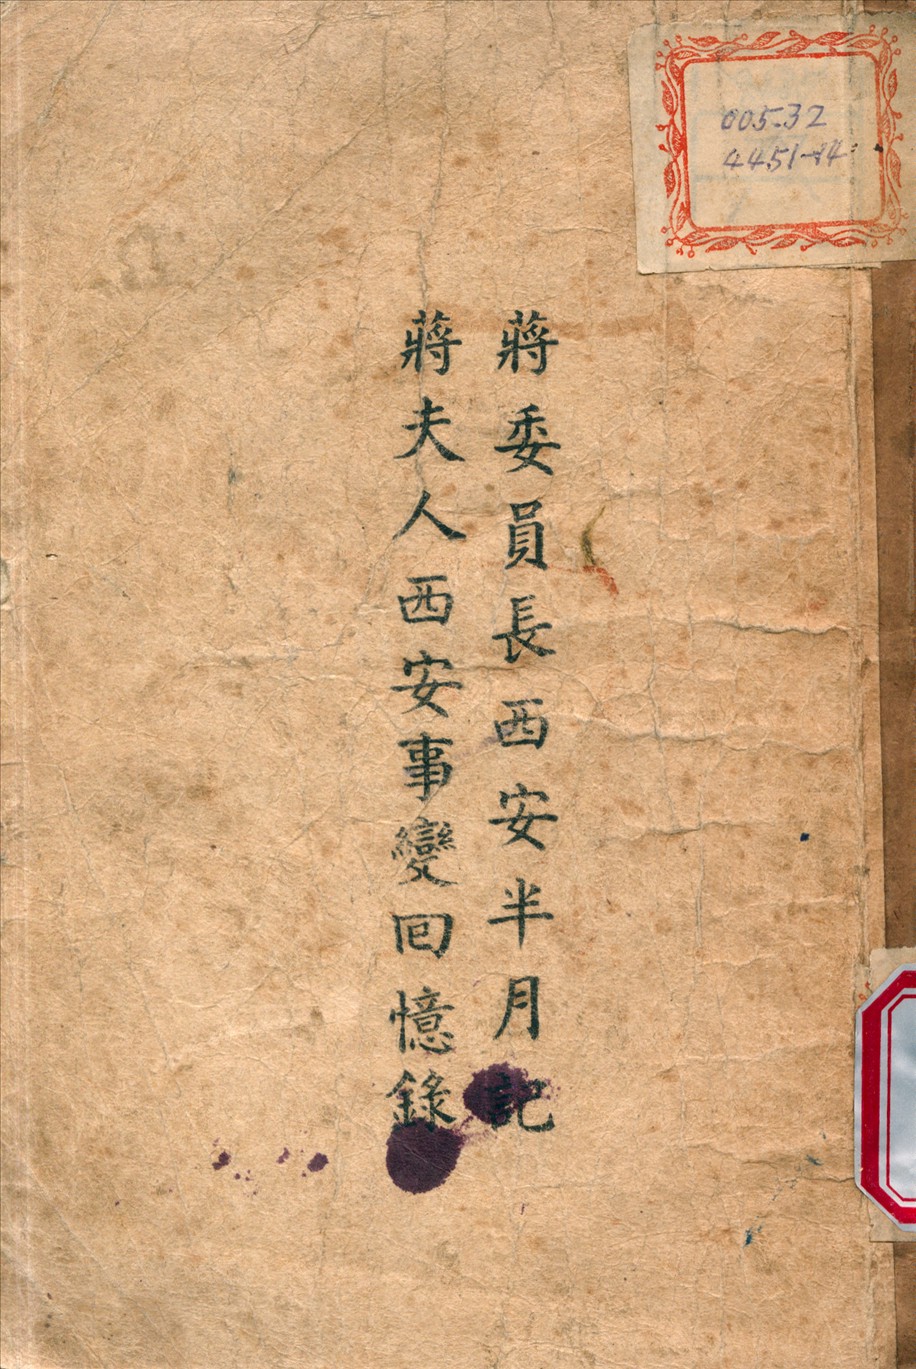 蔣委員長西安半月記
蔣夫人西安事變回憶錄
005.32
4451-84